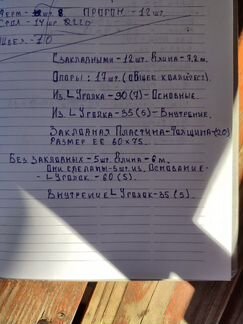 Ферм- 8 Прогон - 12 шт.
- 14 шт. 0220
Швел - 10
С закладными - 12 шт. Длина - 7,2 м.
Опоры: 17 шт. (общее
Из. L Уголка - 90(7) - Основные.
Из. L Уголка - 35(5) - Внутрение.
Закладная Пластина - Толщина - (20)
Размер Её 60 х 75.
Без Закладных - 5 шт. Длина - 6 м.
Они сделаны - 5 шт. из. Основание -
- L Уголок - 60 (5).
Внутрение L Уголок - 35 (5).